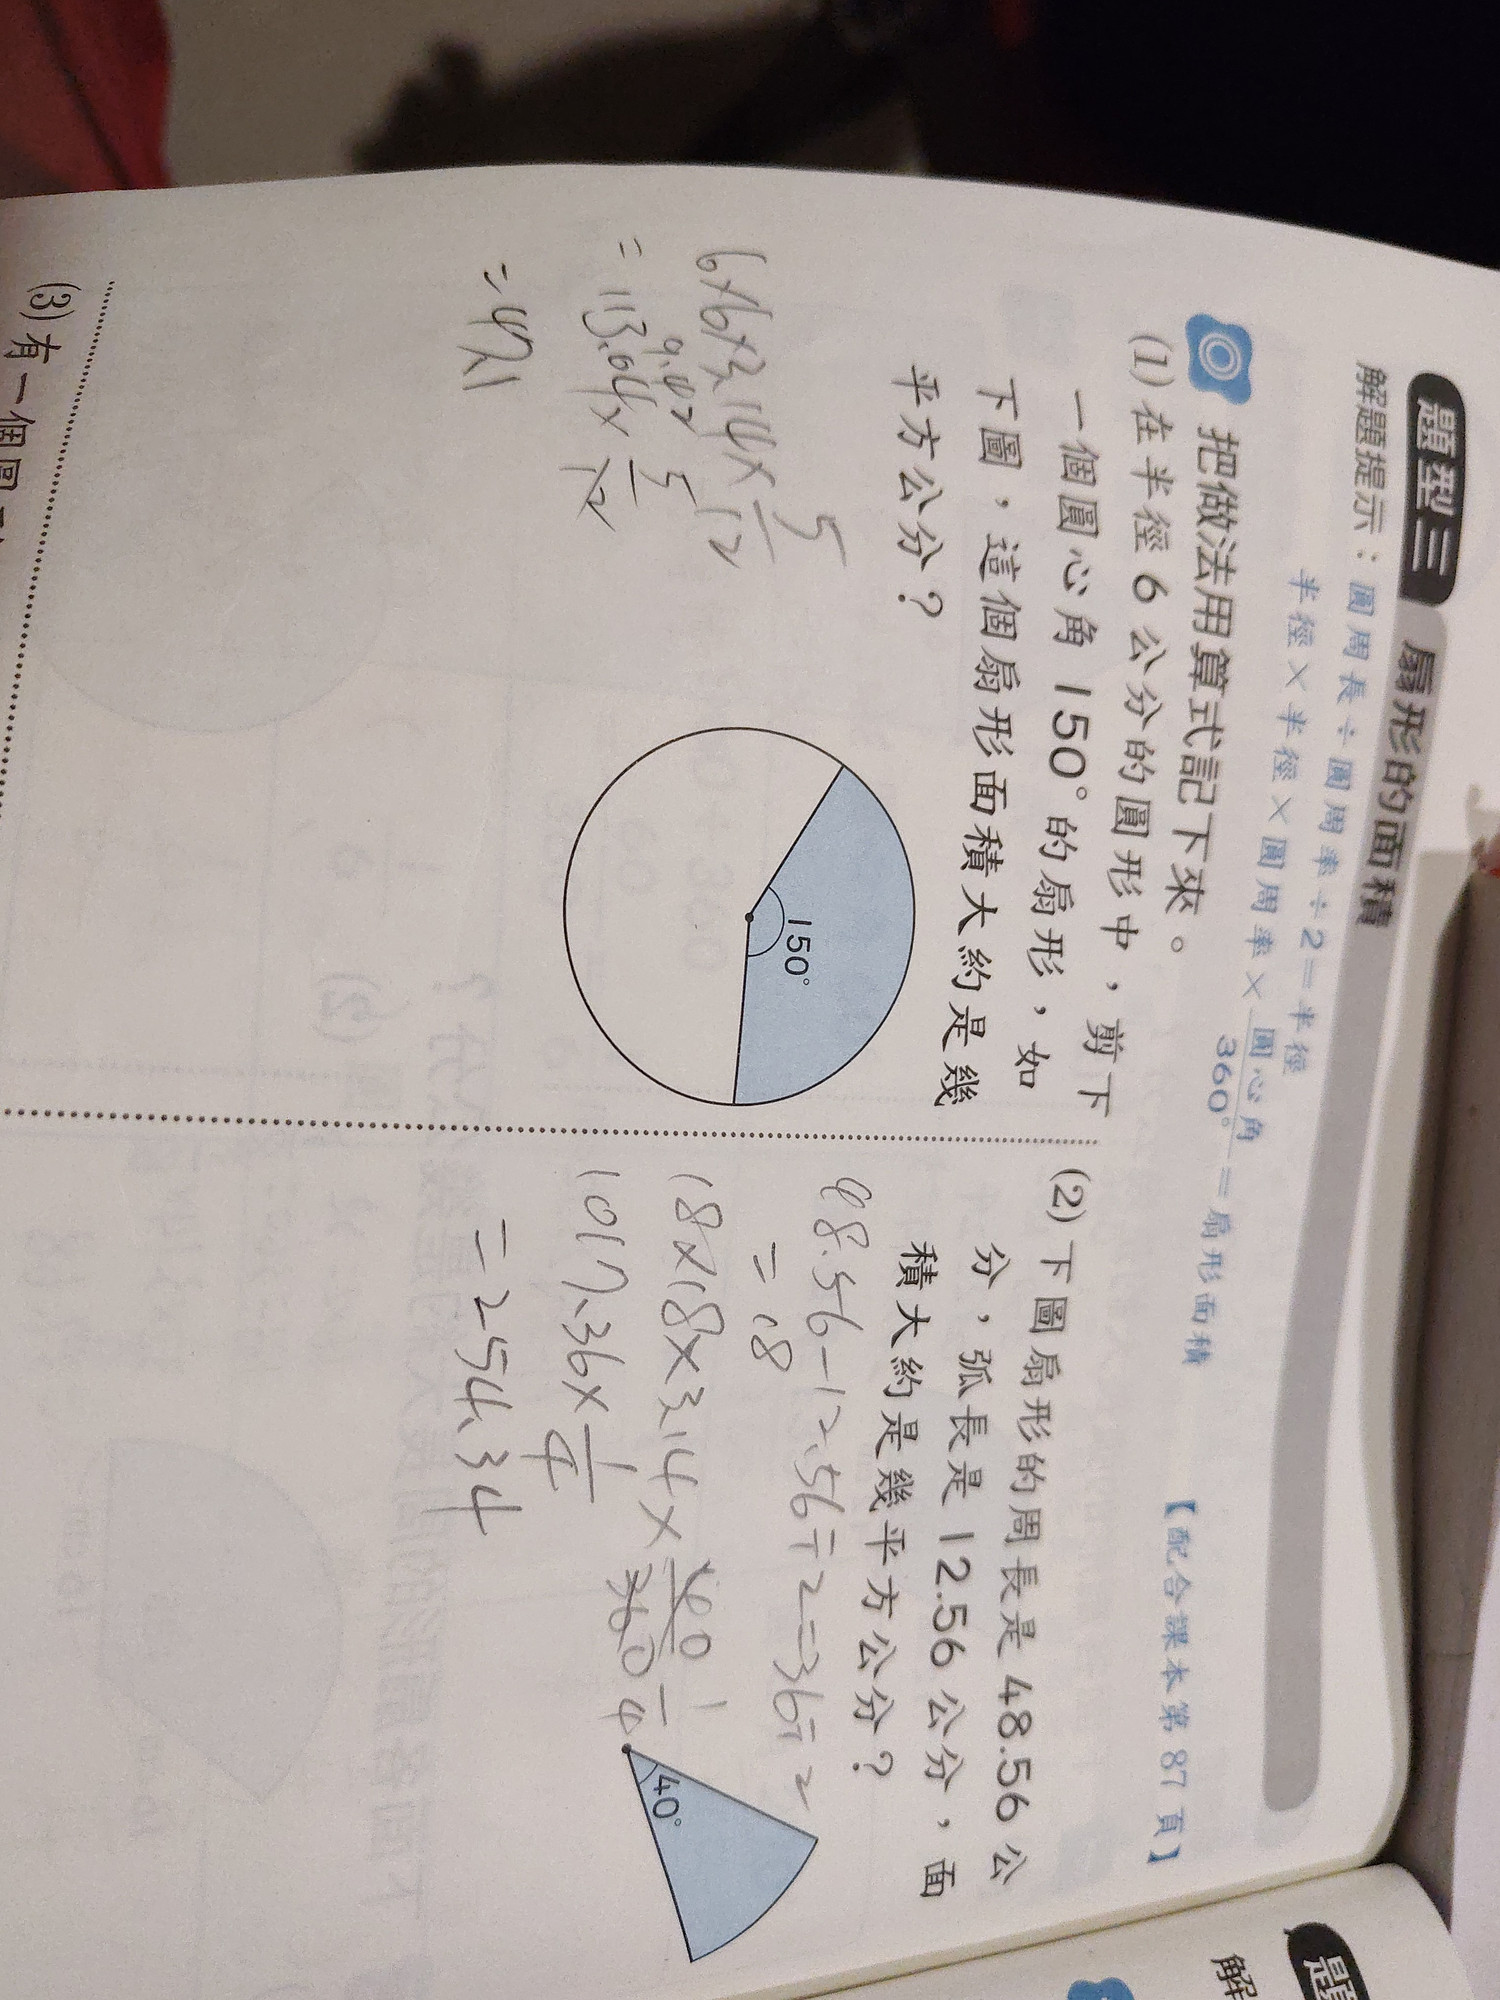 題型三 扇形的面積
解題提示：圓周長÷圓周率÷2＝半徑
半徑×半徑×圓周率×圓心角/360°＝扇形面積
【配合課本第 87 頁】
把做法用算式記下來。
(1)在半徑 6 公分的圓形中，剪下
一個圓心角 150°的扇形，如
下圖，這個扇形面積大約是幾
平方公分？
6×6×3.14×5/12
9.42
=113.04×5/12
=47.1
150°
(2)下圖扇形的周長是 48.56 公
分，弧長是 12.56 公分，面
積大約是幾平方公分？
48.56-12.56÷2=36÷2
=18
18×18×3.14×
1017.36×1/4
=254.34
40°
(3)有一個圓
題
解